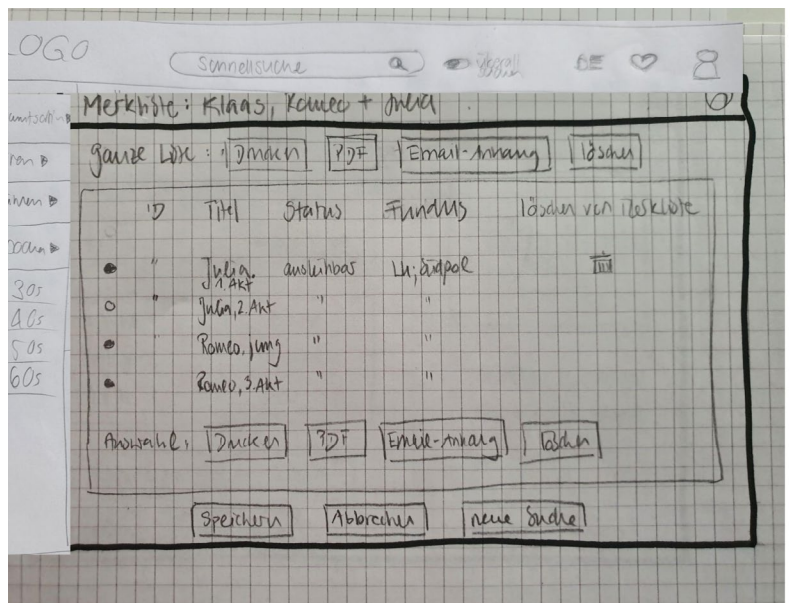 LOGO
Schnellsuche
DE
Merkliste: Klaas, Romeo + Julia
ganze Liste: Drucken PDF Email-Anhang löschen
ID Titel Status Fundus löschen von Merkliste
" Julia, 1. Akt ausleihbar
" Julia, 2. Akt " "
" Romeo, jung " "
Romeo, 3. Akt " "
30s
40s
50s
60s
Auswahl: Drucken PDF Email-Anhang löschen
Speichern Abbrechen neue Suche